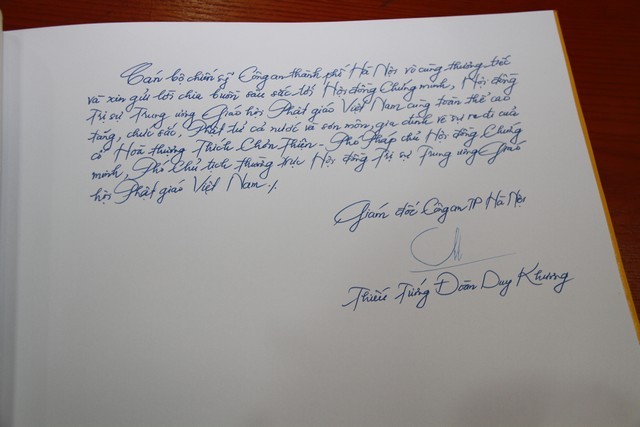 Cán bộ chiến sỹ Công an thành phố Hà Nội vô cùng thương tiếc
và xin gửi lời chia buồn sâu sắc tới Hội đồng Chứng minh, Hội đồng
Trị sự Trung ương Giáo hội Phật giáo Việt Nam cùng toàn thể cao
tăng, chức sắc, Phật tử cả nước và sơn môn, gia đình về sự ra đi của
cố Hoà thượng Thích Chơn Thiện - Phó Pháp chủ Hội đồng Chứng
minh, Phó Chủ tịch thường trực Hội đồng Trị sự Trung ương Giáo
hội Phật giáo Việt Nam./.
Giám đốc Công an TP Hà Nội
Thiếu Tướng Đoàn Duy Khương